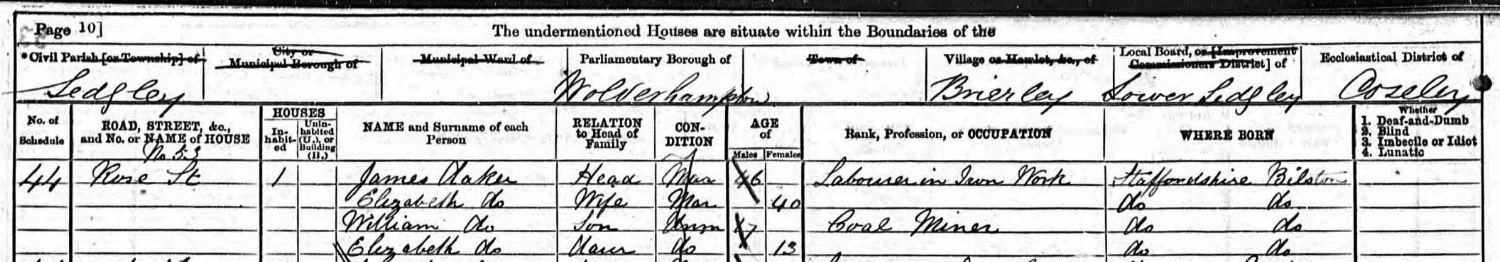 Page 10]
The undermentioned Houses are situate within the Boundaries of the
Civil Parish [or Township] of City or Municipal Borough of Municipal Ward of Parliamentary Borough of Town of Village or Hamlet, &c., of Local Board, or [Improvement Commissioners District] of Ecclesiastical District of
Sedgley Wolverhampton Brierley Lower Sedgley Coseley
No. of Schedule ROAD, STREET, &c., and No. or NAME of HOUSE HOUSES In-habit-ed Unin-habited (U.), or Building (B.) NAME and Surname of each Person RELATION to Head of Family CON-DITION AGE of Males Females Rank, Profession, or OCCUPATION WHERE BORN Whether 1. Deaf-and-Dumb 2. Blind 3. Imbecile or Idiot 4. Lunatic
No 53
44 Rose St 1 James Head Mar 46 Labourer in Iron Work Staffordshire Bilston
Elizabeth do Wife Mar 40 do do
William do Son Unm 17 Coal Miner do do
Elizabeth do Daur do 13 do do